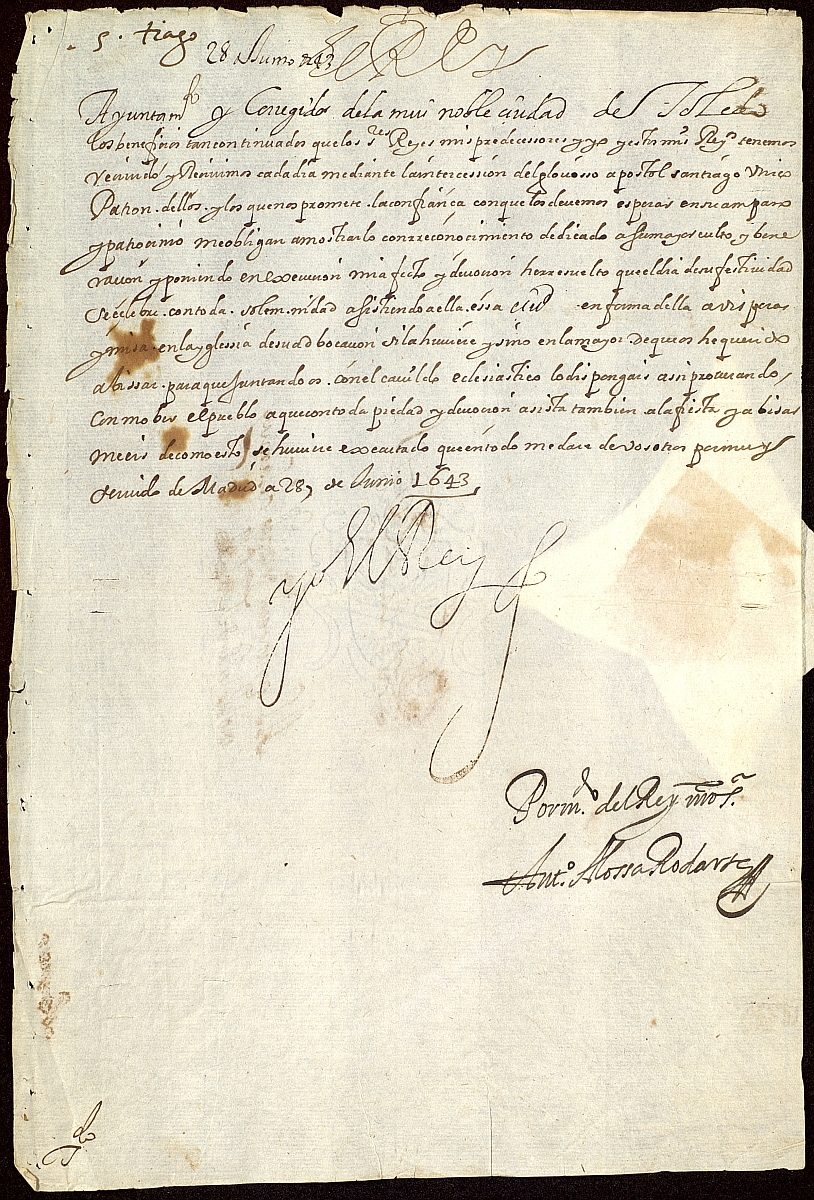 S. tiago
28 Junio 643
el Rey
Ayuntamto y Corregidor de la mui noble ciudad de Toledo
los beneficios tan continuados que los sres Reyes mis predecessores y yo y estos mis Reyos tenemos
recivido y Recivimos cada dia mediante la intercession del glorioso apostol santiago Unico
Patron dellos y los que nos promete la confiança con que los devemos esperar en su amparo
y patrocinio me obligan a mostrarlo con rreconocimiento dedicado a su mayor culto y bene
racion y poniendo en execucion mi afecto y devocion he rresuelto que el dia de su festividad
se celebre con toda solemnidad asistiendo a ella essa ciud en forma della a visperas
y misa en la yglessia de su adbocacion si la huviere y si no en la mayor de que os he querido
abissar para que juntandoos con el cavildo eclesiastico lo dispongais assi procurando
conmober el pueblo a que con toda piedad y devocion asista tambien a la fiesta y abisar
meeis de como esto se huviere executado que en todo me dare de vosotros por muy
servido de Madrid a 28 de Junio 1643
yo El Rey
Por mdo del Rey nro sr
Anto Alossa Rodarte
Tdo